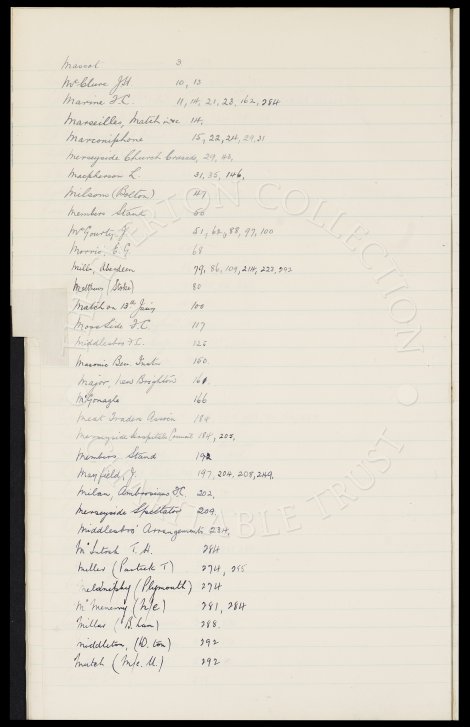 Mascot 3
McClure J.H. 10, 13
Marine F.C. 11, 14, 21, 23, 162, 284
Marseilles, Match 14,
Marconiphone 15, 22, 24, 29, 31
Merseyside Church Crusade, 29, 42,
Macpherson L 31, 35, 146,
Milsom (Bolton) 47
Members Stand 50
McGourty, J. 51, 62, 88, 97, 100
Morris, E.G. 68
Mills, Aberdeen 79, 86, 109, 214, 223, 292
Matthews (Stoke) 80
Match on 13th 100
Moss Side F.C. 117
Middlesbro F.C. 125
Masonic Ben. Instn 150.
Major, New Brighton 161.
McGonagle 166
Meat Traders Assocn 184
Merseyside Hospitals Council 184, 205,
Members Stand 192
Mayfield, J. 197, 204, 208, 249,
Milan, Ambrosiana F.C. 202.
Merseyside Spectator 209.
Middlesbro' Arrangements 234,
McIntosh T.H. 284
Miller (Partick T) 274, 255
(Plymouth) 274
McMenemy (N/c) 281, 284
Millar (B.ham) 288.
Middleton, (D. ton) 292
Mutch (M/c. U.) 292
EVERTON COLLECTION
CHARITABLE TRUST